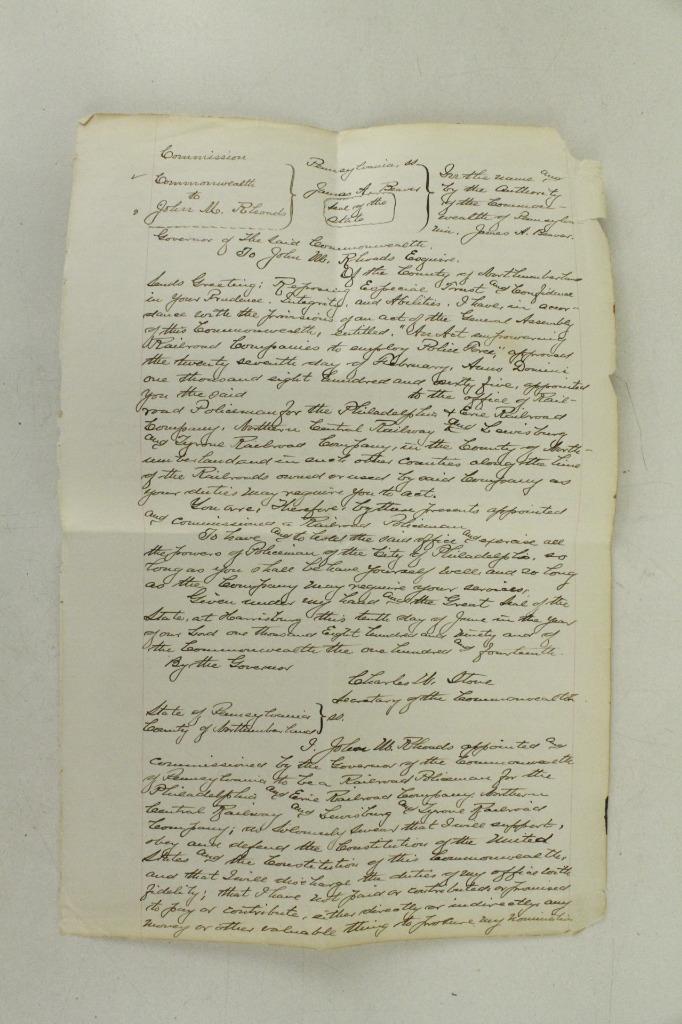 Commission
Commonwealth
to
John M. Rhoads
Pennsylvania, ss
James A. Beaver
Seal of the
State
In the name and
by the Authority
of the Common-
wealth of Pennsylva-
nia. James A. Beaver.
Governor of the Said Commonwealth.
To John M. Rhoads Esquire.
Of the County of Northumberland
Sends Greeting: Reposing Especial Trust and Confidence
in Your Prudence. Integrity, and Abilities. I have, in accor-
dance with the provisions of an act of the General Assembly
of this Commonwealth, entitled, "An Act empowering
Railroad Companies to employ Police Force," approved
the twenty seventh day of February, Anno Domini
one thousand eight hundred and sixty five, appointed
you the said to the office of Rail-
road Policeman for the Philadelphia & Erie Railroad
Company, Northern Central Railway and Lewisburg
and Tyrone Railroad Company, in the County of North-
umberland and in such other counties along the line
of the Railroads owned or used by said Company as
your duties may require you to act.
You are, Therefore, by these presents appointed
and commissioned a Railroad Policeman.
To have and to hold the said office and exercise all
the powers of Policeman of the City of Philadelphia, so
long as you shall behave yourself well, and so long
as the Company may require your services.
Given under my hand and the Great Seal of the
State, at Harrisburg this tenth day of June in the year
of our Lord one thousand Eight hundred and ninety and of
the Commonwealth the one hundred and fourteenth.
By the Governor
Charles W. Stone
Secretary of the Commonwealth
State of Pennsylvania
County of Northumberland
ss.
I, John M. Rhoads appointed and
commissioned by the Governor of the Commonwealth
of Pennsylvania, to be a Railroad Policeman for the
Philadelphia and Erie Railroad Company Northern
Central Railway and Lewisburg and Tyrone Railroad
Company; do Solemnly Swear that I will support,
obey and defend the Constitution of the United
States and the Constitution of this Commonwealth,
and that I will discharge the duties of my office with
fidelity; that I have not paid or contributed, or promised
to pay or contribute, either directly or indirectly, any
money or other valuable thing to procure my nomination